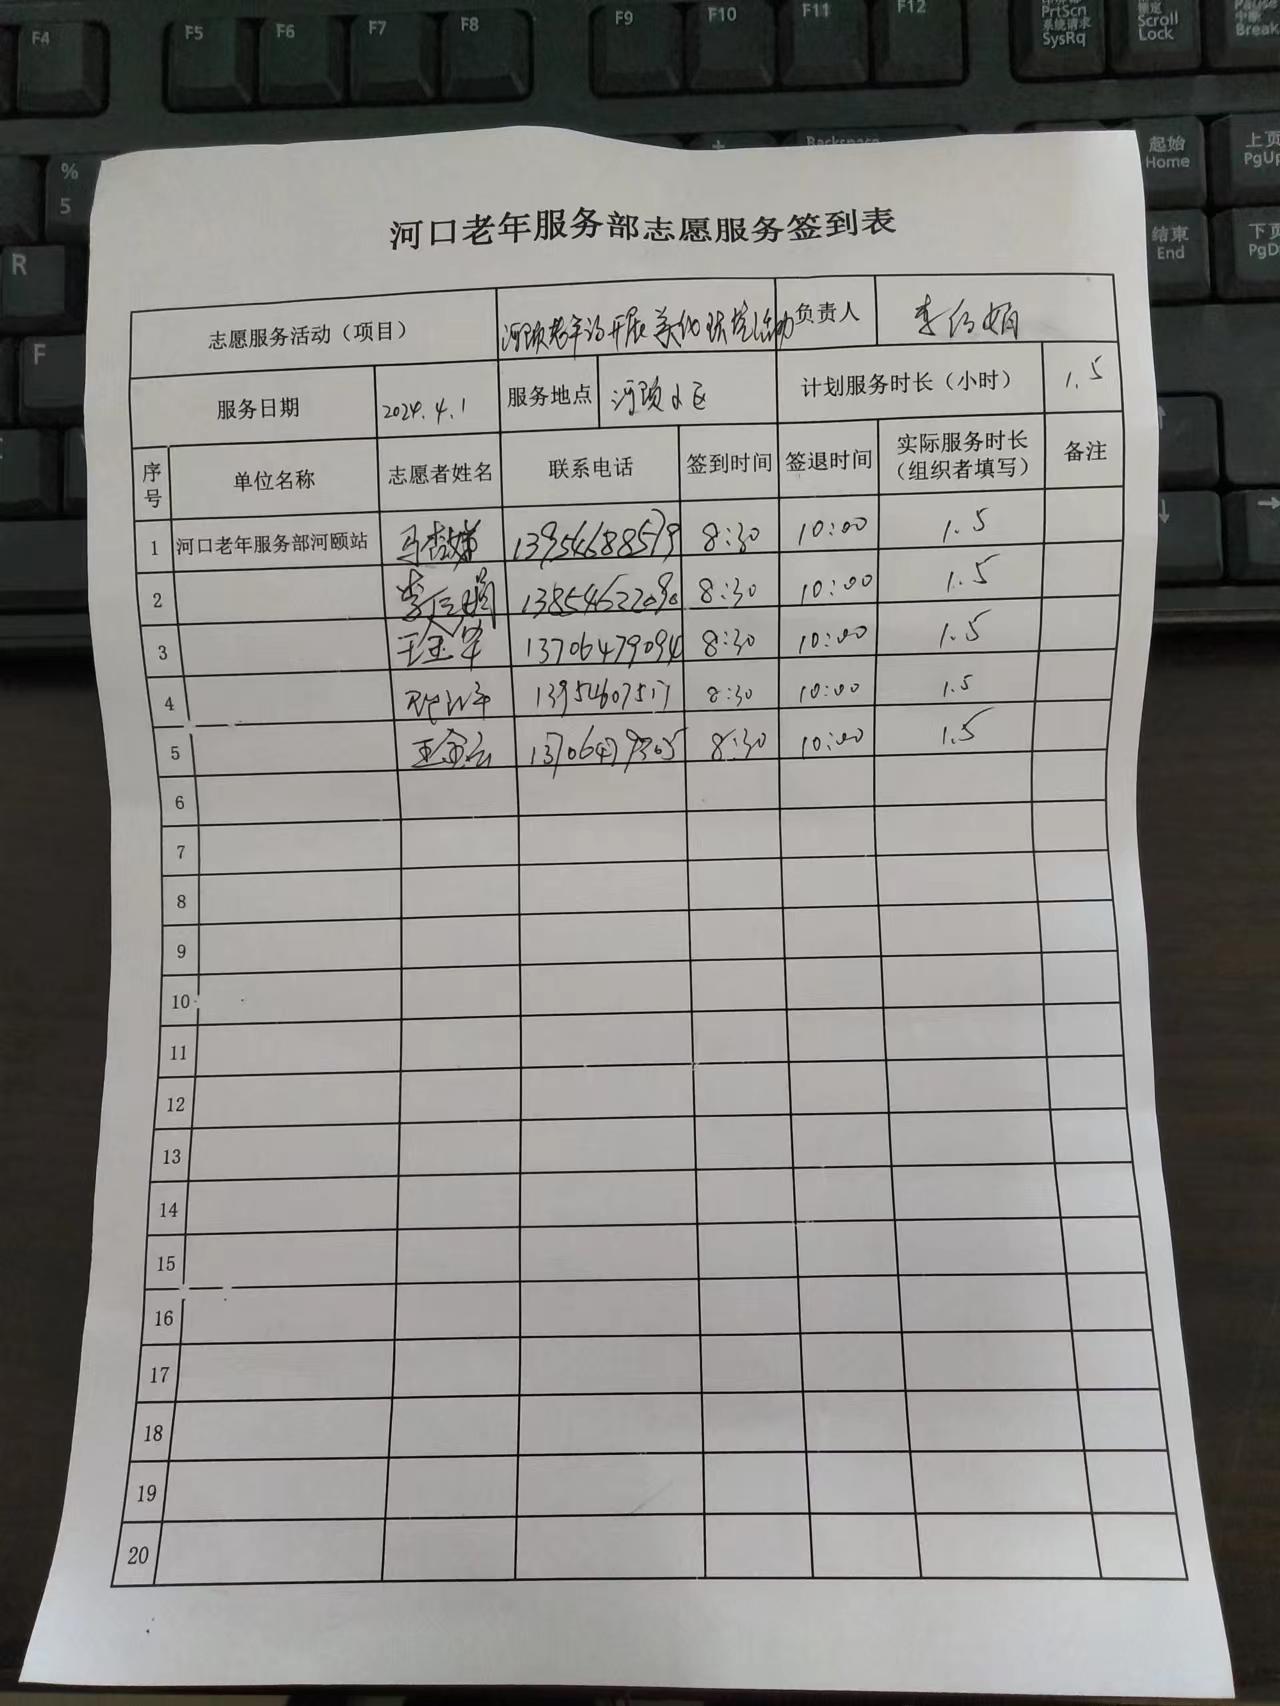 F4 F5 F6 F7 F8 F9 F10 F11 F12 PrtScn 系统请求 SysRq Scroll Lock Break
% 5 起始 Home 上页 PgUp
R 结束 End 下页
F
河口老年服务部志愿服务签到表
志愿服务活动（项目） 河颐老年站开展美化环境活动 负责人
服务日期 2024.4.1 服务地点 河颐小区 计划服务时长（小时） 1.5
序号 单位名称 志愿者姓名 联系电话 签到时间 签退时间 实际服务时长（组织者填写） 备注
1 河口老年服务部河颐站 13954688579 8:30 10:00 1.5
2 8:30 10:00 1.5
3 王金华 13706479094 8:30 10:00 1.5
4 8:30 10:00 1.5
5 王金云 13706479305 8:30 10:00 1.5
6
7
8
9
10
11
12
13
14
15
16
17
18
19
20